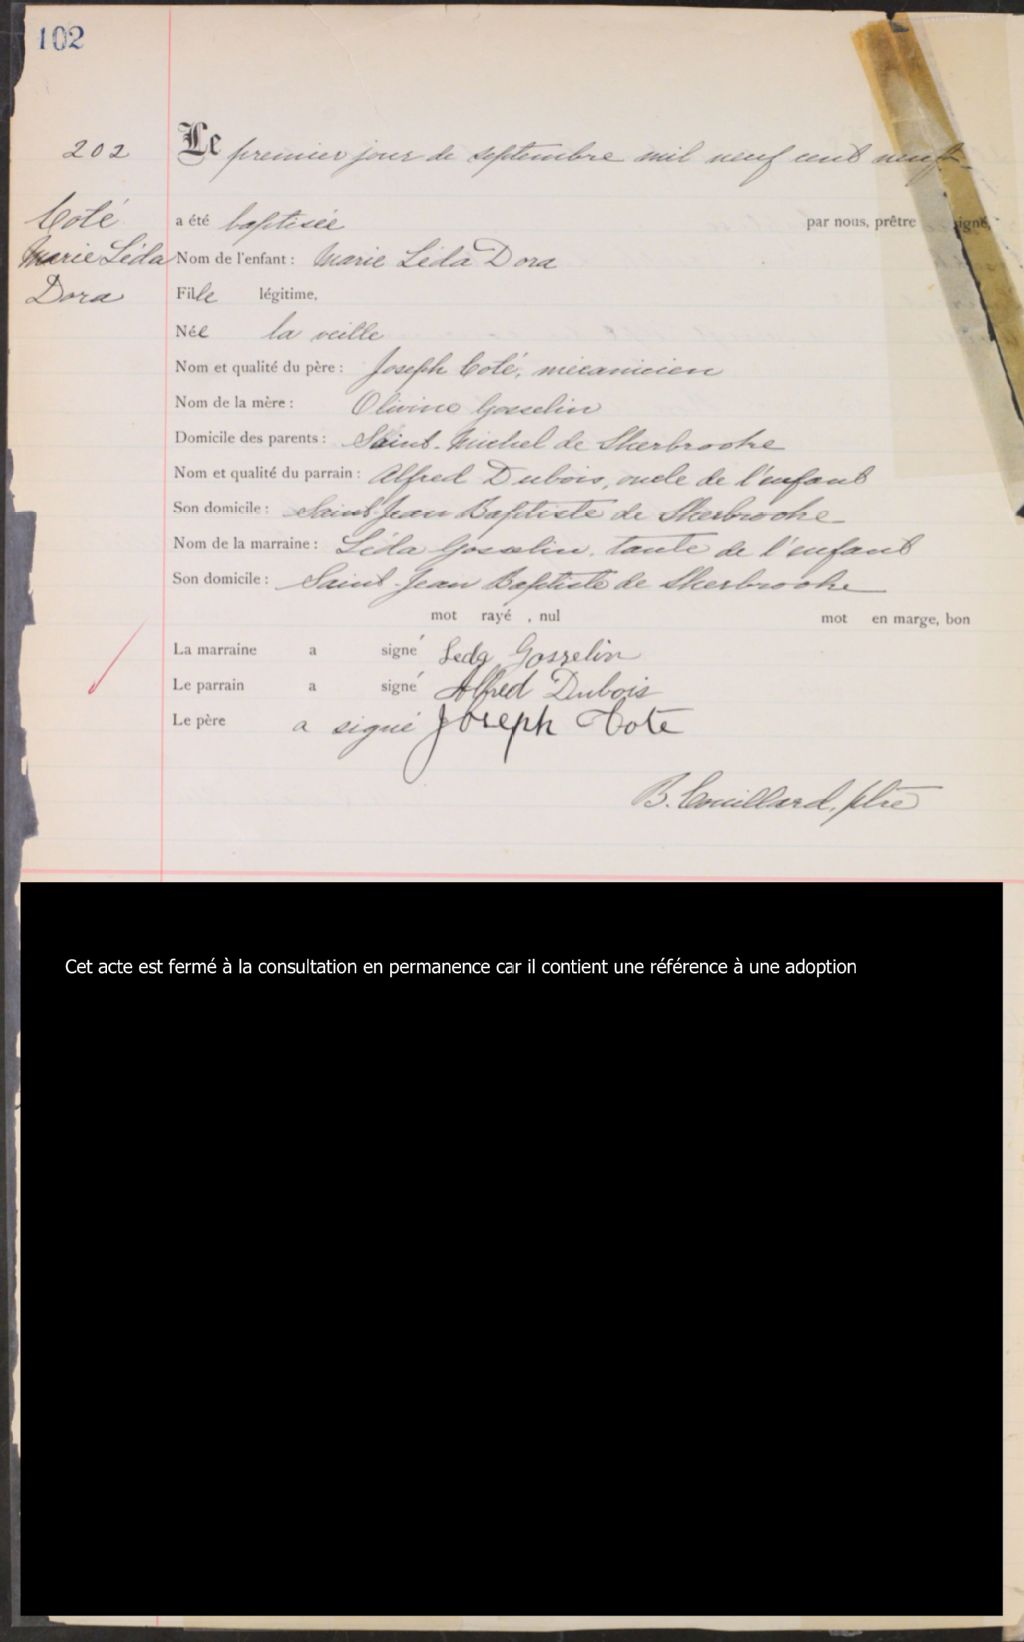 102
202
Le premier jour de septembre mil neuf cent neuf
Coté
Marie Léda
Dora
a été baptisée par nous, prêtre signé,
Nom de l'enfant : Marie Léda Dora
Fille légitime,
Née la veille
Nom et qualité du père : Joseph Coté, mécanicien
Nom de la mère : Olivine Gosselin
Domicile des parents : Saint-Michel de Sherbrooke
Nom et qualité du parrain : Alfred Dubois, oncle de l'enfant
Son domicile : Saint Jean Baptiste de Sherbrooke
Nom de la marraine : Léda Gosselin, tante de l'enfant
Son domicile : Saint-Jean Baptiste de Sherbrooke
mot rayé , nul mot en marge, bon
La marraine a signé Leda Gosselin
Le parrain a signé Alfred Dubois
Le père a signé Joseph Cote
B. Couillard, ptre
Cet acte est fermé à la consultation en permanence car il contient une référence à une adoption